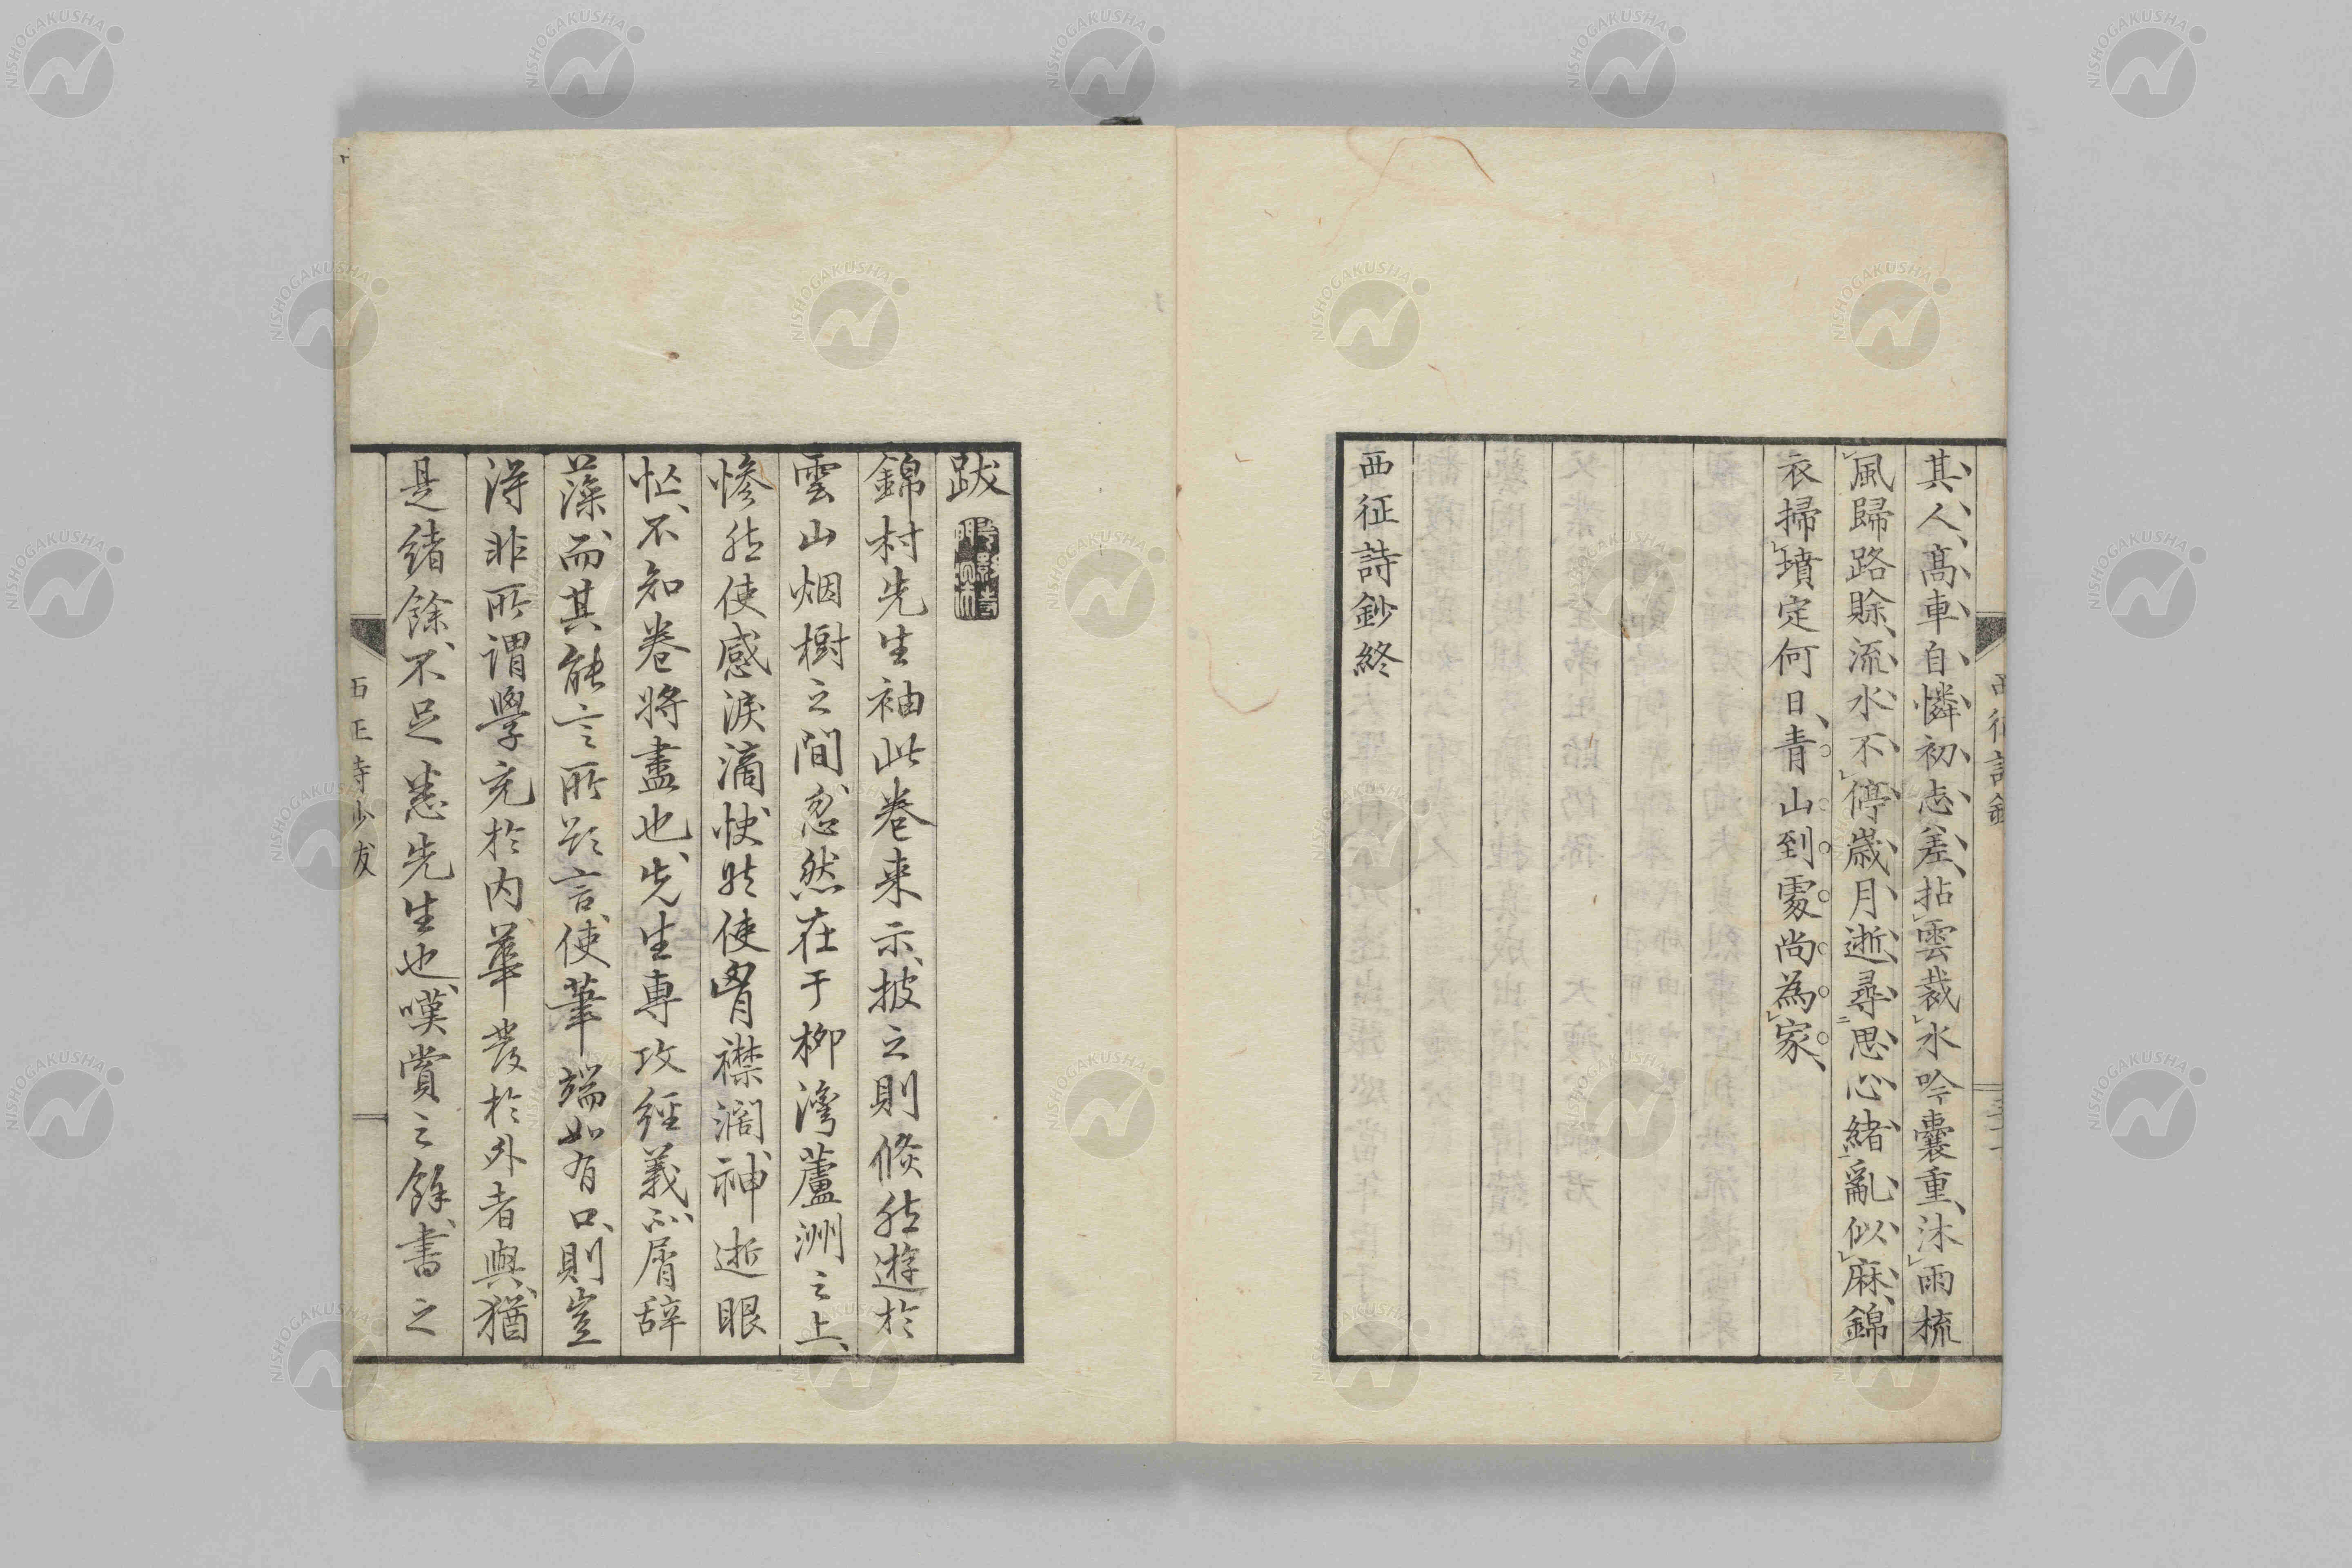 其人高車自憐初志差拈雲裁水吟囊重沐雨梳
風歸路賒流水不停歳月逝尋思心緒亂似麻錦
衣掃墳定何日青山到處尚為家
西征詩鈔終
跋
錦村先生袖此卷来示披之則倏然遊於
雲山烟樹之間忽然在于柳灣蘆洲之上
惨然使感淚滴快然使胷襟濶神逝眼
忙不知卷将盡也先生専攻經義不屑辞
藻而其能言所欲言使筆端如有口則豈
得非所謂學充於内華發於外者與猶
是緒餘不足悉先生也嘆賞之餘書之
NISHOGAKUSHA